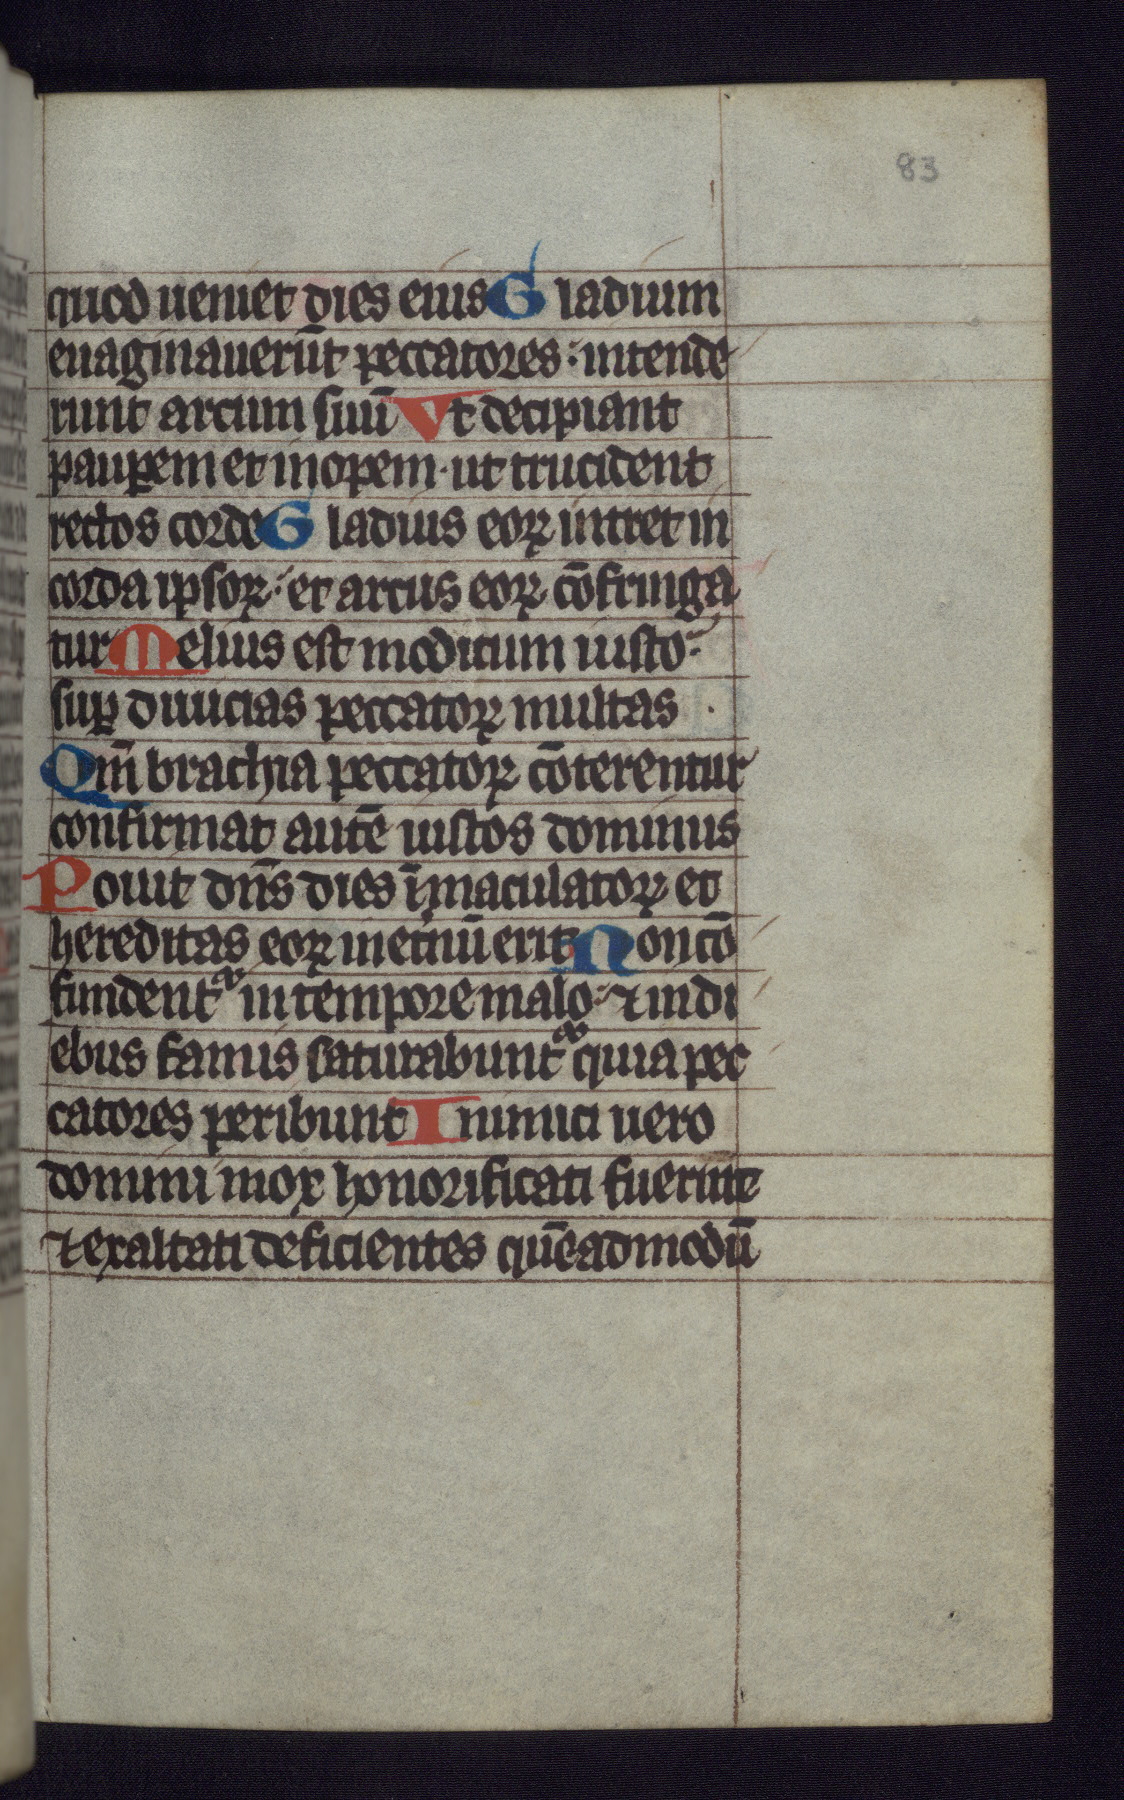 83
quod ueniet dies eius Gladium
euaginauerūt peccatores : intende
runt arcum suū Vt decipiant
pauꝑem et inopem · ut trucident
rectos corde Gladius eoꝝ intret in
corda ipsoꝝ : et arcus eoꝝ cōfringa
tur Melius est modicum iusto :
suꝑ diuicias peccatoꝝ multas .
Qm̄ brachia peccatoꝝ cōterentur
confirmat autē iustos dominus
Pouit dn̄s dies īmaculatoꝝ et
hereditas eoꝝ inet̄nū erit Non cō
fundentᷓ in tempore malo : ⁊ in di
ebus famis saturabuntᷓ quia pec
catores peribunt Inimici uero
domini mox honorificati fuerint
⁊ exaltati deficientes quēadmodū